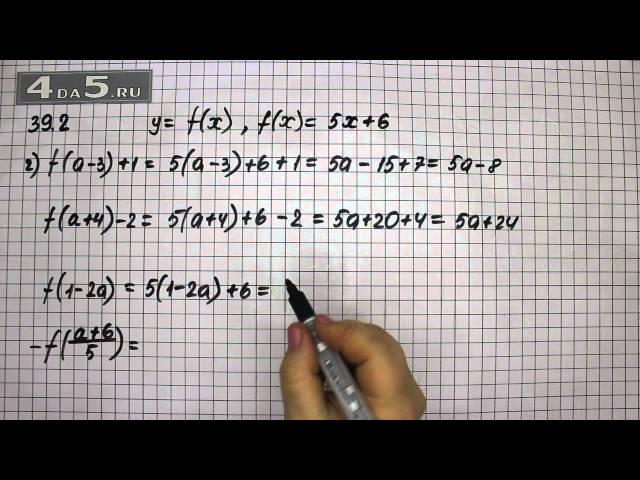 4ДА5.RU
39.2 y= f(x) , f(x)= 5x+6
г) f(a-3)+1= 5(a-3)+6+1= 5a-15+7= 5a-8
f(a+4)-2= 5(a+4)+6-2= 5a+20+4= 5a+24
f(1-2a) = 5(1-2a)+6=
-f((a+6)/5)=